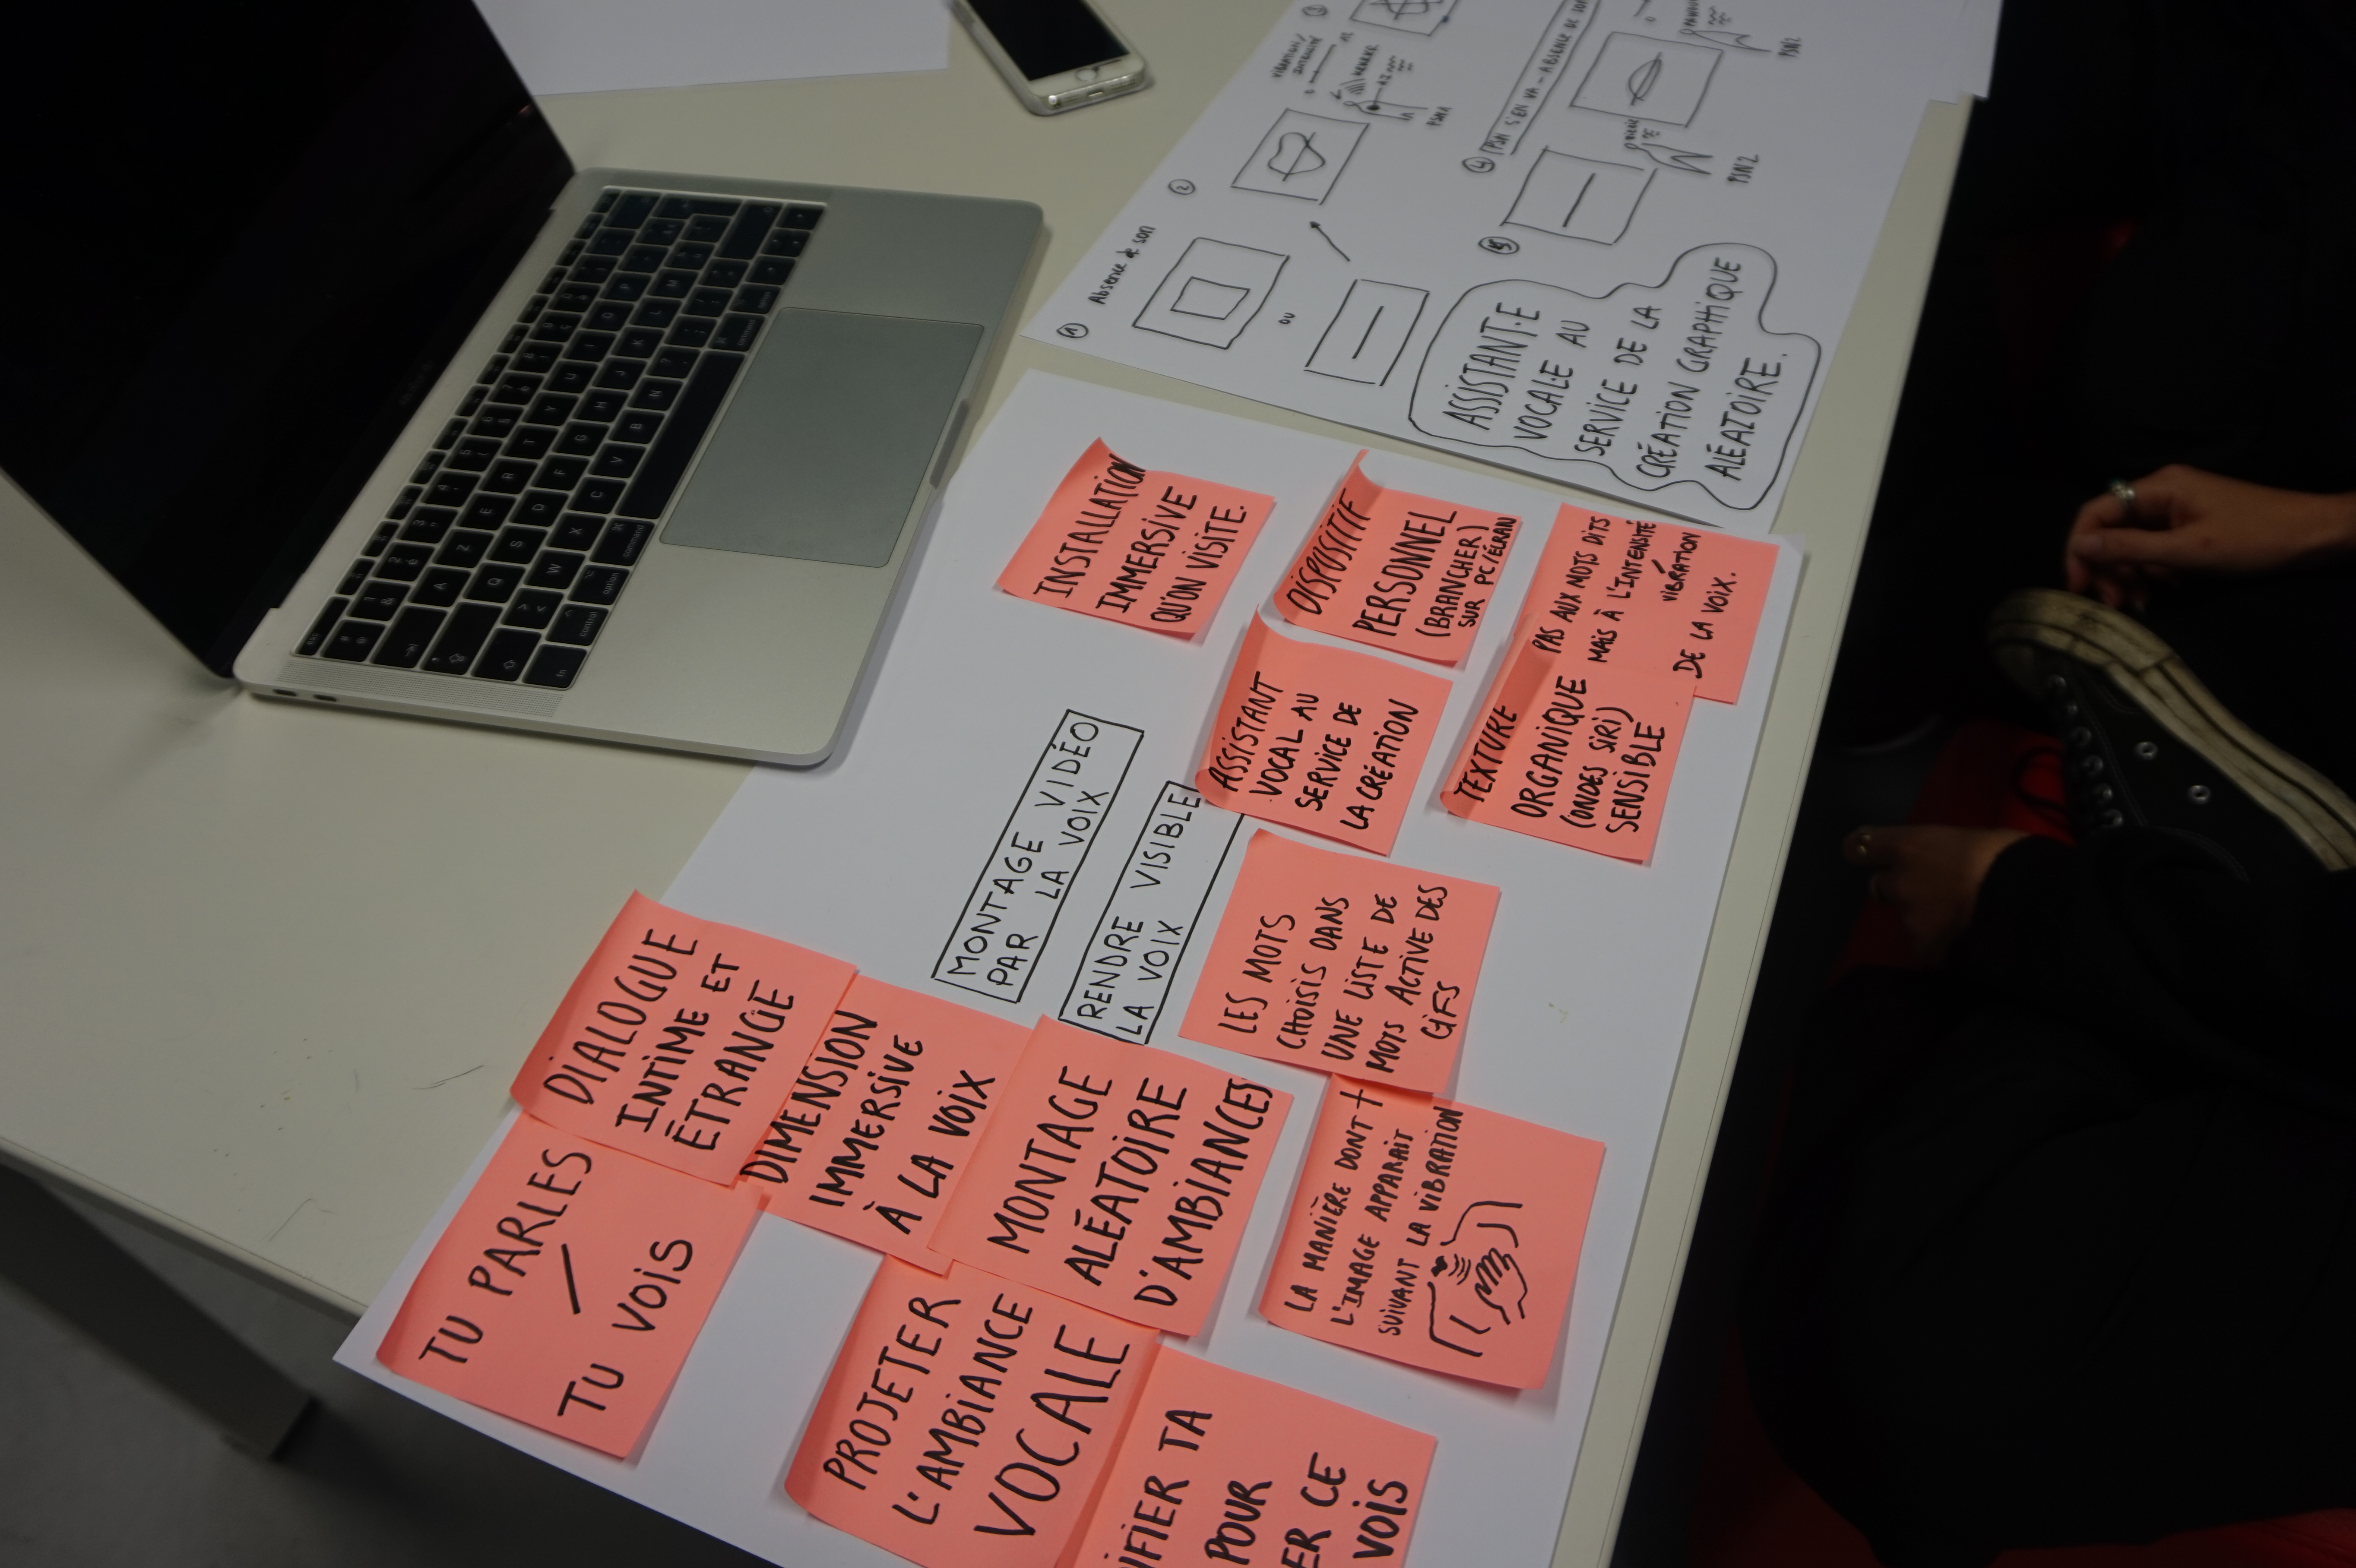 ABSENCE DE SON
PSN S'EN VA -
PSN1
PSN2
①
Absence de son
ou
②
VIBRATION/
INTENSITÉ
③
④
⑤
ASSISTANT·E
VOCAL·E AU
SERVICE DE LA
CRÉATION GRAPHIQUE
ALÉATOIRE.
INSTALLATION
IMMERSIVE
QU'ON VISITE.
DISPOSITIF
PERSONNEL
(BRANCHER)
SUR PC/ÉCRAN
PAS AUX MOTS DITS
MAIS À L'INTENSITÉ
VIBRATION
DE LA VOIX.
ASSISTANT
VOCAL AU
SERVICE DE
LA CRÉATION
TEXTURE
ORGANIQUE
(ONDES SIRI)
SENSIBLE
MONTAGE VIDÉO
PAR LA VOIX
RENDRE VISIBLE
LA VOIX
LES MOTS
CHOISIS DANS
UNE LISTE DE
MOTS ACTIVE DES
GIFS
DIALOGUE
INTIME ET
ÉTRANGE
DIMENSION
IMMERSIVE
À LA VOIX
MONTAGE
ALÉATOIRE
D'AMBIANCES
LA MANIÈRE DONT
L'IMAGE APPARAIT
SUIVANT LA VIBRATION
TU PARLES
/
TU VOIS
PROJETER
L'AMBIANCE
VOCALE
IFIER TA
POUR
ER CE
VOIS